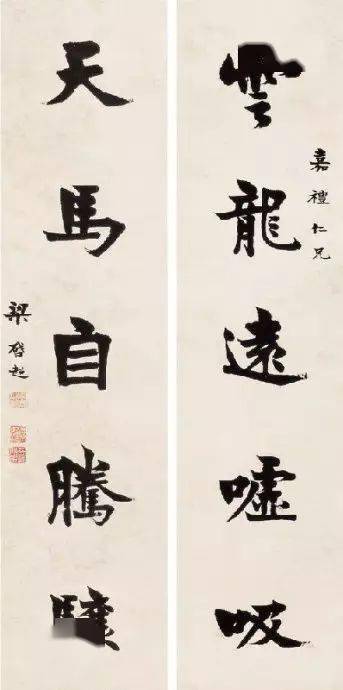 嘉禮仁兄
雲龍遠噓吸
天馬自騰驤
梁啟超